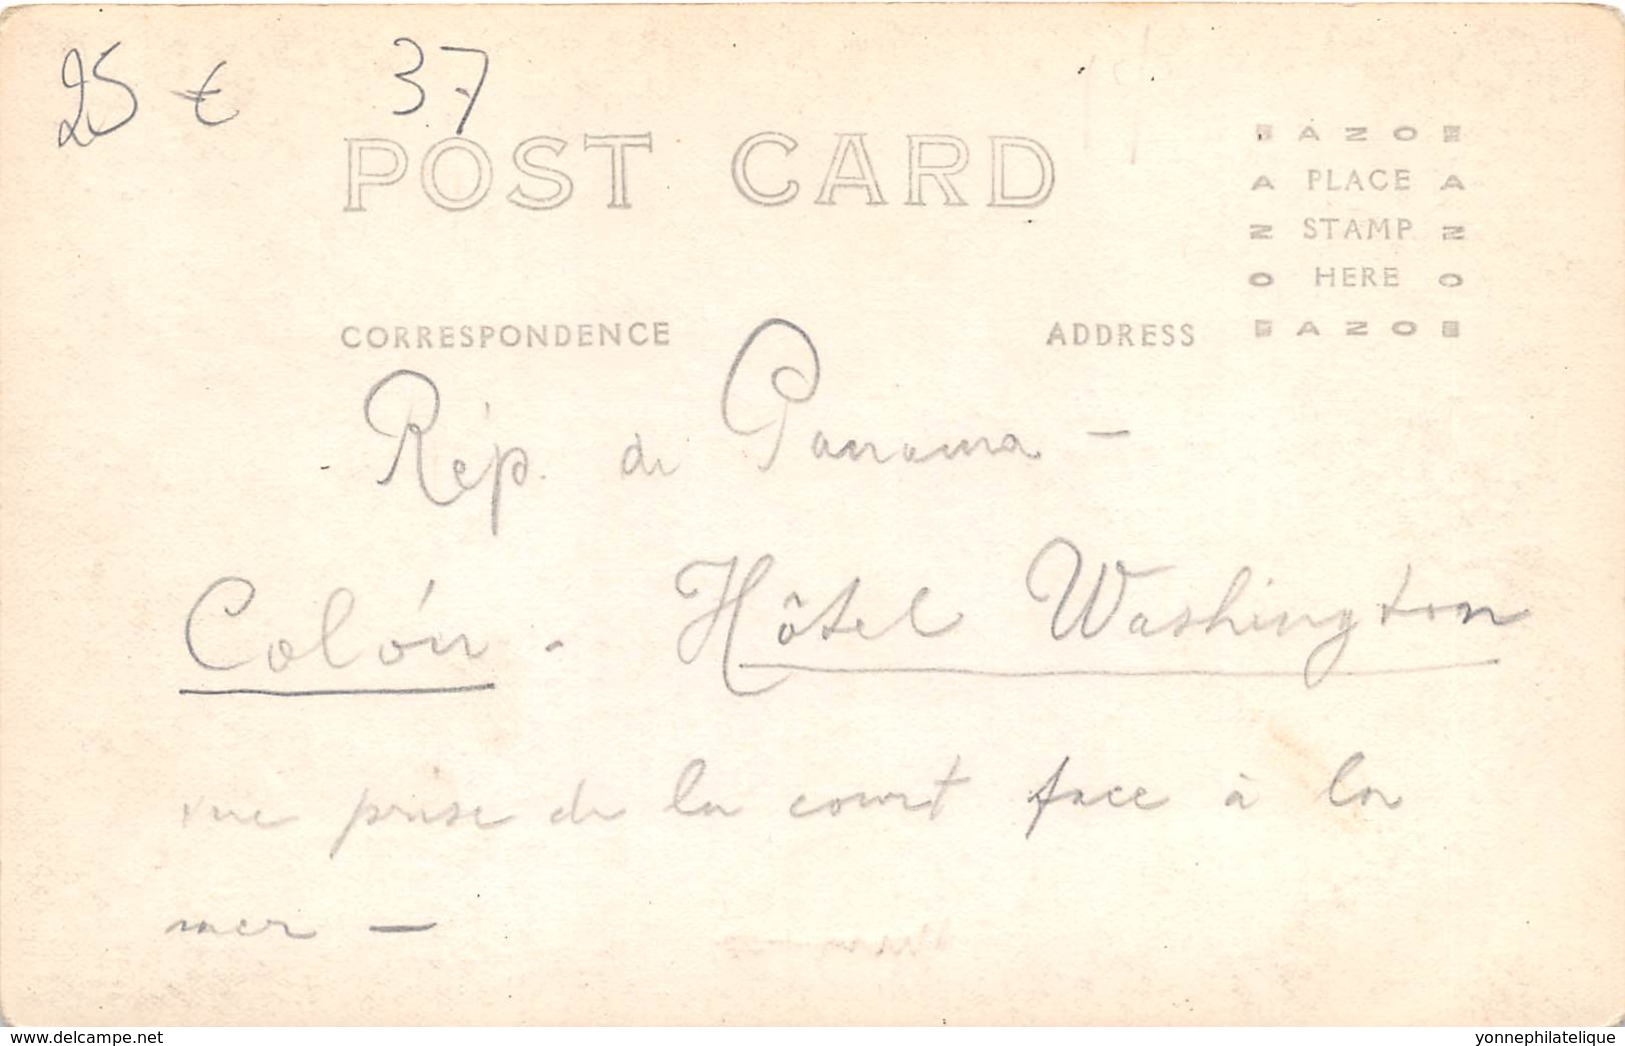 25 € 37
POST CARD
AZO
PLACE
STAMP
HERE
AZO
CORRESPONDENCE ADDRESS
Rép. de Panama —
Colón. Hôtel Washington
vue prise de la court face à la
mer —
www.delcampe.net yonnephilatelique